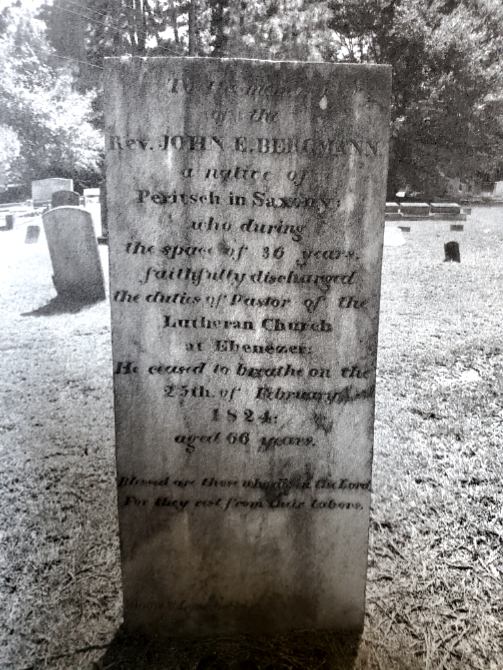 To the memory
of the
Rev. JOHN E. BERGMANN
a native of
Peritsch in Saxony;
who during
the space of 36 years.
faithfully discharged
the duties of Pastor of the
Lutheran Church
at Ebenezer:
He ceased to breathe on the
25th. of February,
1824:
aged 66 years.
Blessed are those who die in the Lord
For they rest from their labors.